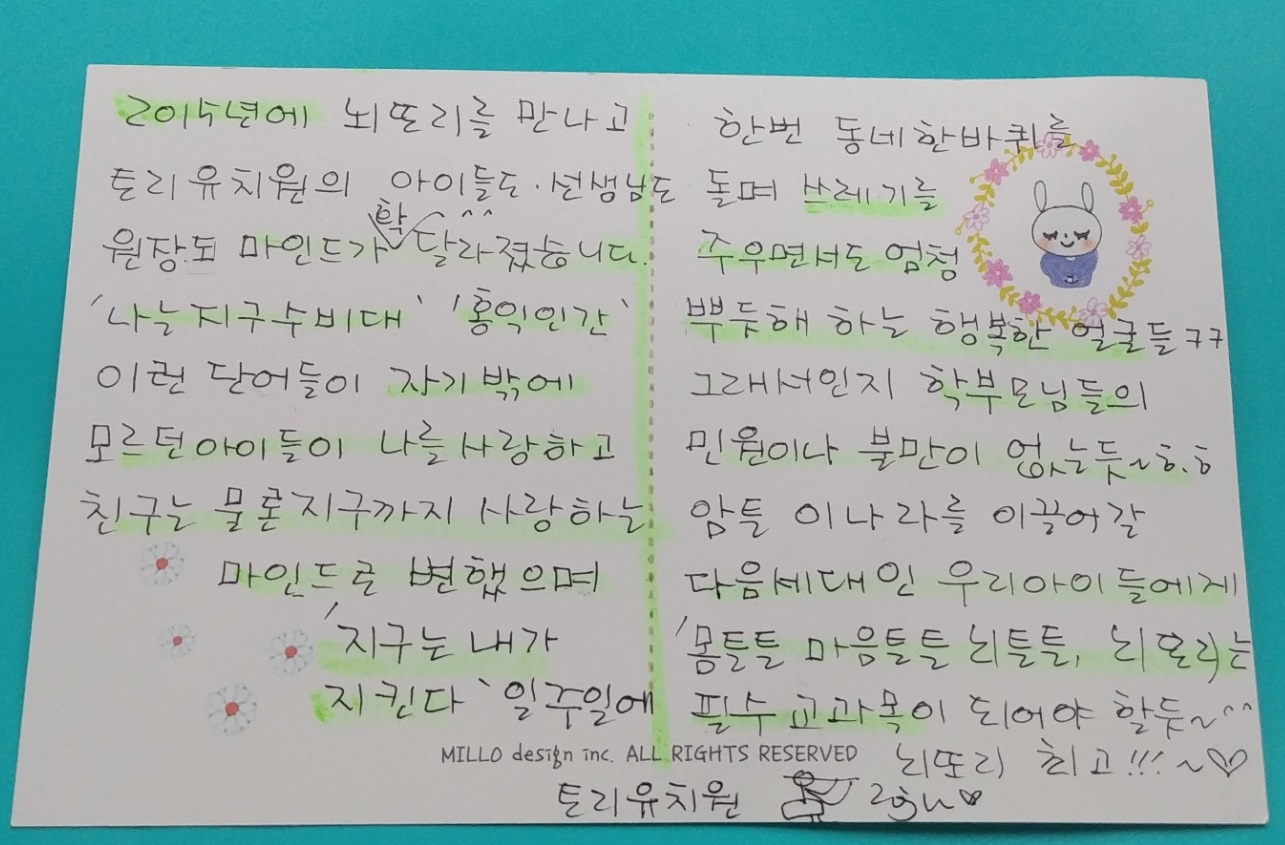 2015년에 뇌또리를 만나고
토리유치원의 아이들도·선생님도
원장도 마인드가 확 달라졌습니다.
'나는지구수비대' '홍익인간'
이런 단어들이 자기밖에
모르던아이들이 나를사랑하고
친구는 물론지구까지 사랑하는
마인드로 변했으며
'지구는 내가
지킨다' 일주일에
한번 동네한바퀴를
돌며 쓰레기를
주우면서도 엄청
뿌듯해 하는 행복한 얼굴들 ㅋㅋ
그래서인지 학부모님들의
민원이나 불만이 없는듯~ㅎ.ㅎ
암튼 이나라를 이끌어갈
다음세대인 우리아이들에게
'몸튼튼 마음튼튼 뇌튼튼, 뇌또리는
필수교과목이 되어야 할듯~^^
뇌또리 최고!!!~♡
MILLO design inc. ALL RIGHTS RESERVED
토리유치원